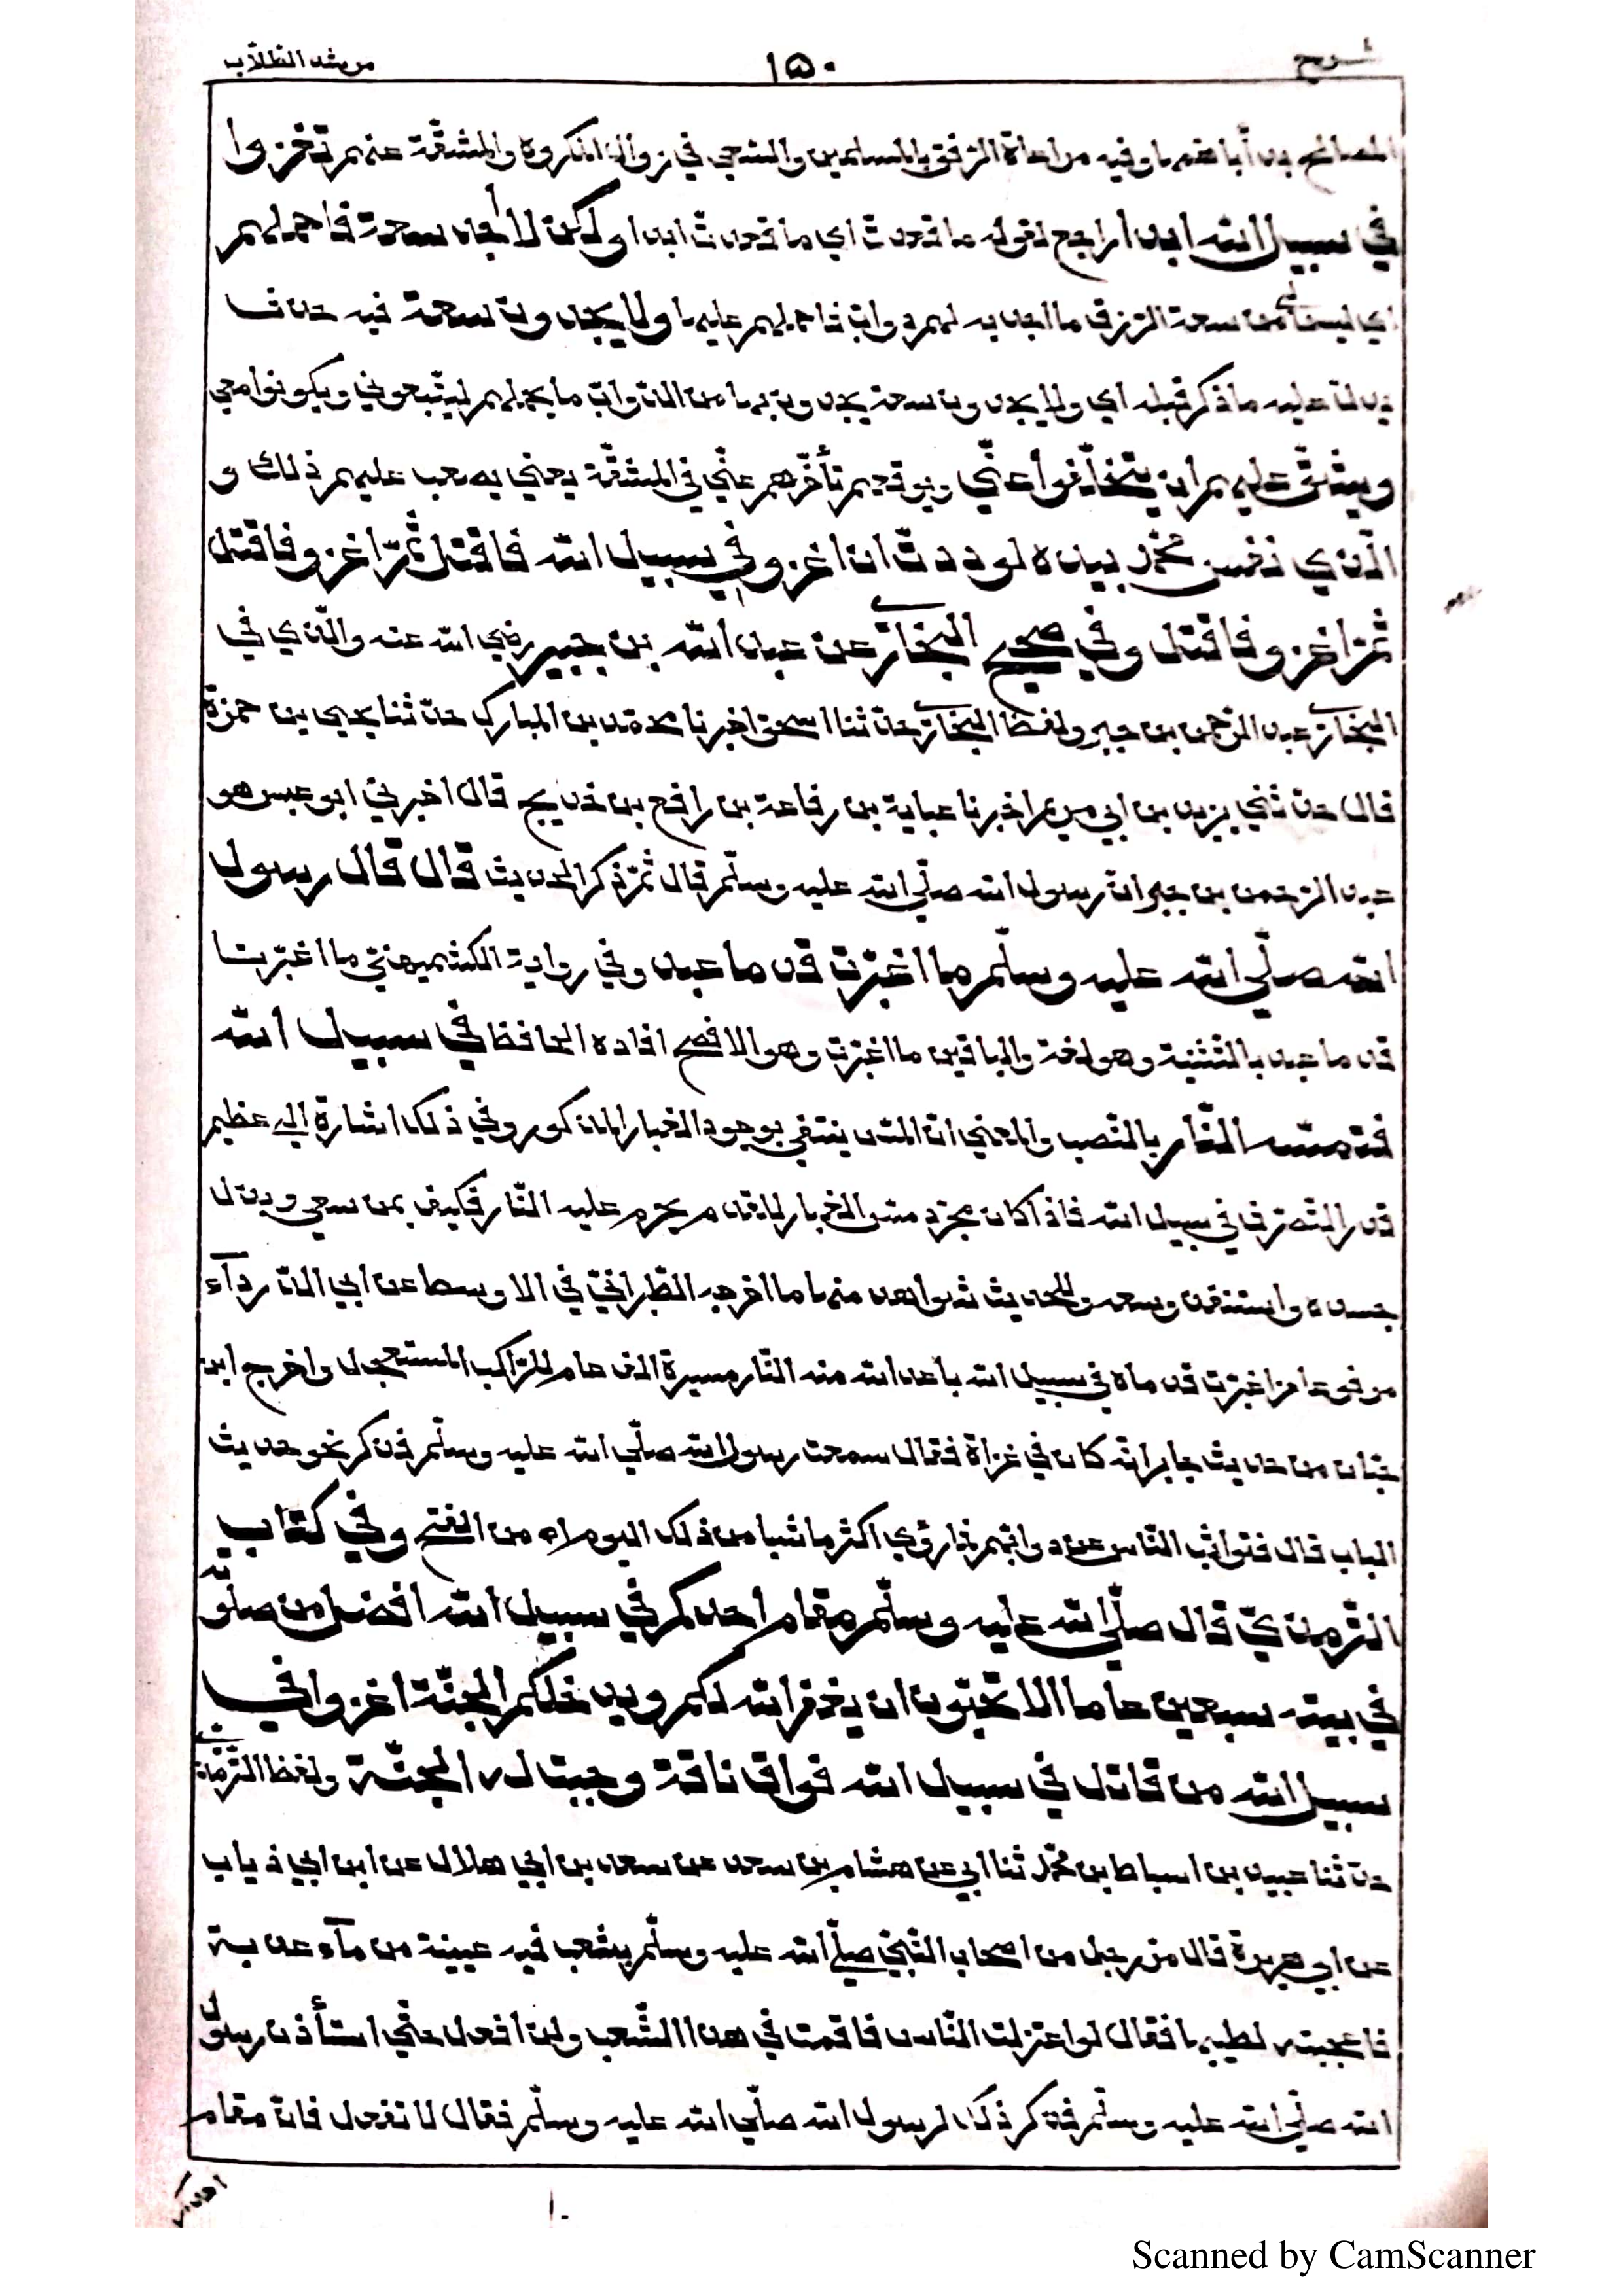 شرح ١٥٠ مرشد الطلاب
المصالح بدأ بأهمها وفيه مراعاة الرفق بالمسلمين والسعي في زوال المكروه والمشقة عنهم تغزوا
في سبيل الله ابدا راجع لقوله ما قعدت اي ما قعدت ابدا ولكن لا أجد سعة فاحملهم
اي ليس لي من سعة الرزق ما اجد به لهم دواب فاحملهم عليها ولا يجدون سعة فيه حذف
يدل عليه ما ذكر قبله اي ولا يجدون سعة يجدون بها من الدواب ما يحملهم ليتبعوني ويكونوا معي
ويشق عليهم ان يتخلفوا عني ويوقعهم تأخرهم عني في المشقة يعني يصعب عليهم ذلك و
الذي نفس محمد بيده لوددت ان اغزو في سبيل الله فاقتل ثم اغزو فاقتل
ثم اغزو فاقتل وفي صحيح البخاري عن عبد الله بن جبير رضي الله عنه والذي في
البخاري عبد الرحمن بن جبر ولفظ البخاري حدثنا اسحق اخبرنا محمد بن المبارك حدثنا يحيى بن حمزة
قال حدثني يزيد بن ابي مريم اخبرنا عباية بن رفاعة بن رافع بن خديج قال اخبرني ابو عبس هو
عبد الرحمن بن جبر ان رسول الله صلي الله عليه وسلم قال ثم ذكر الحديث قال قال رسول
الله صلي الله عليه وسلم ما اغبرت قدما عبد وفي رواية الكشميهني ما اغبرتا
قدما عبد بالتثنية وهو لغة والباقين ما اغبرت وهو الافصح افاده الحافظ في سبيل الله
فتمسه النار بالنصب والمعني ان المس ينتفي بوجود الغبار المذكور وفي ذلك اشارة الي عظيم
قدر التصرف في سبيل الله فاذا كان مجرد مس الغبار للقدم يحرم عليه النار فكيف بمن سعي وبذل
جسده واستنفد وسعه وللحديث شواهد منها ما اخرجه الطبراني في الاوسط عن ابي الدردآء
مرفوعا من اغبرت قدماه في سبيل الله باعد الله منه النار مسيرة الف عام للراكب المستعجل واخرج ابن
حبان من حديث جابر انه كان في غزاة فقال سمعت رسول الله صلي الله عليه وسلم فذكر نحو حديث
الباب قال فتواثب الناس عن دوابهم فما رؤي اكثر ماشيا من ذلك اليوم اه من الفتح وفي كتاب
الترمذي قال صلي الله عليه وسلم مقام احدكم في سبيل الله افضل من صلوته
في بيته سبعين عاما الا تحبون ان يغفر الله لكم ويدخلكم الجنة اغزوا في
سبيل الله من قاتل في سبيل الله فواق ناقة وجبت له الجنة ولفظ الترمذي
حدثنا عبيد بن اسباط بن محمد ثنا ابي عن هشام بن سعد عن سعد بن ابي هلال عن ابن ابي ذياب
عن ابي هريرة قال مر رجل من اصحاب النبي صلي الله عليه وسلم بشعب فيه عيينة من مآء عذبة
فاعجبته لطيبها فقال لو اعتزلت الناس فاقمت في هذا الشعب ولن افعل حتي استأذن رسول
الله صلي الله عليه وسلم فذكر ذلك لرسول الله صلي الله عليه وسلم فقال لا تفعل فان مقام
احدكم
Scanned by CamScanner